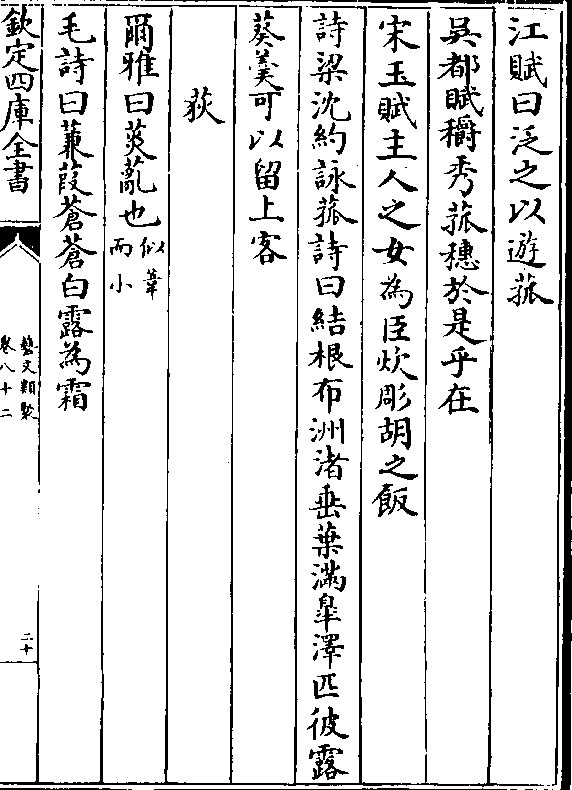 江賦曰泛之以遊菰
吳都賦穱秀菰穗於是乎在
宋玉賦主人之女為臣炊彫胡之飯
詩梁沈約詠菰詩曰結根布洲渚垂葉滿皐澤匹彼露
葵羮可以留上客
荻
爾雅曰菼薍也似葦而小
毛詩曰蒹葭蒼蒼白露為霜
欽定四庫全書
藝文類聚
卷八十二
二十